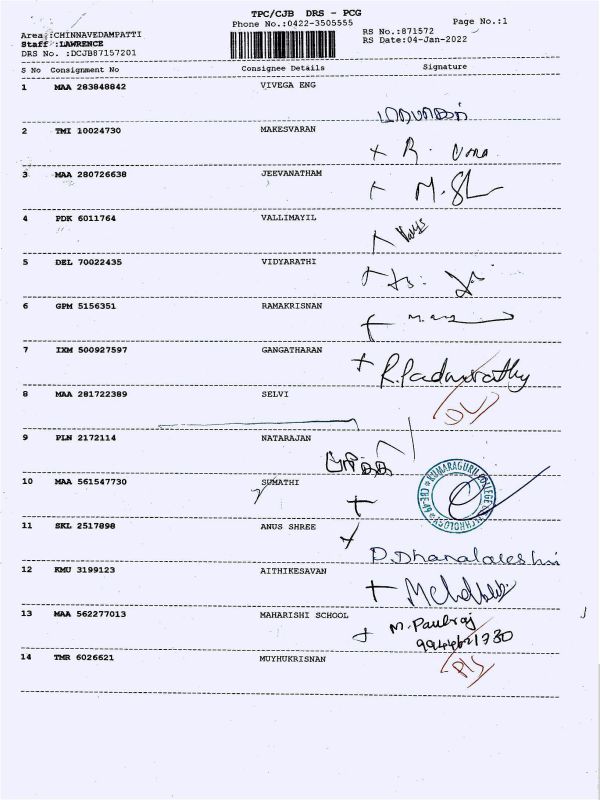 TPC/CJB DRS - PCG
Phone No.:0422-3505555
Page No.:1
Area :CHINNAVEDAMPATTI
Staff :LAWRENCE
DRS No. :DCJB87157201
RS No.:871572
RS Date:04-Jan-2022
S No Consignment No Consignee Details Signature
1 MAA 283848842 VIVEGA ENG
2 TMI 10024730 MAKESVARAN
R. Uma
3 MAA 280726638 JEEVANATHAM
4 PDK 6011764 VALLIMAYIL
5 DEL 70022435 VIDYARATHI
6 GPM 5156351 RAMAKRISNAN
7 IXM 500927597 GANGATHARAN
8 MAA 281722389 SELVI
9 PLN 2172114 NATARAJAN
10 MAA 561547730 SUMATHI
KUMARAGURU COLLEGE OF TECHNOLOGY
11 SKL 2517898 ANUS SHREE
12 KMU 3199123 AITHIKESAVAN
13 MAA 562277013 MAHARISHI SCHOOL
M. Paulraj
14 TMR 6026621 MUYHUKRISNAN